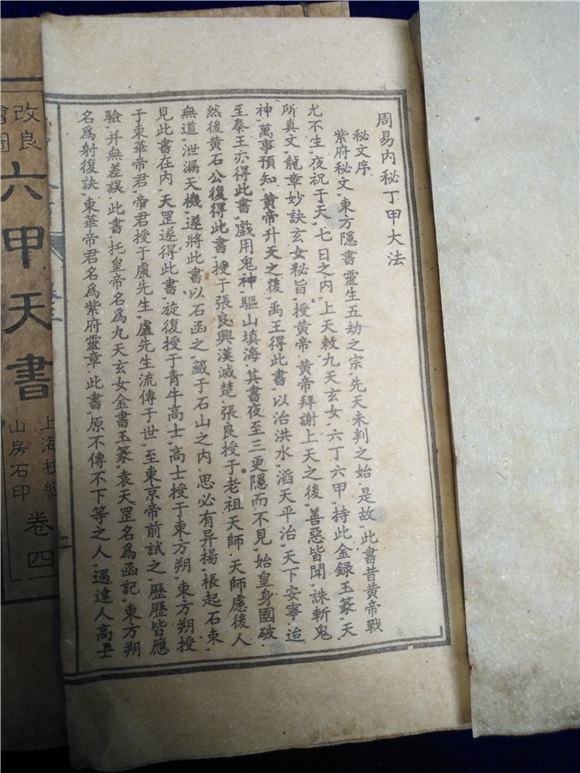 周易內秘丁甲大法
秘文序
紫府秘文，東方隱書，靈生五劫之宗，先天未判之始，是故，此書昔黃帝戰
尤不生，夜祝于天，七日之內，上天敕九天玄女，六丁六甲，持此金錄玉篆，天
所真文，龍章妙訣玄女秘旨，授黃帝，黃帝拜謝上天之後，善惡皆聞，誅斬鬼
神，萬事預知，黃帝升天之後，禹王得此書，以治洪水，滔天平治，天下安寧，迨
至秦王亦得此書，戲用鬼神，驅山填海，其書夜至三更隱而不見，始皇身國破，
然後黃石公復得此書，授于張良興漢滅楚，張良授于老祖天師，天師慮後人
無道，泄漏天機，遂將此書以石函之，藏于石山之內，思必有异揚，棖起石東，
見此書在內，天罡遂得此書，旋復授于青牛高士，高士授于東方朔，東方朔授
于東華帝君，帝君授于盧先生，盧先生流傳于世，至東京帝前試之，歷歷皆應
驗，并無差誤，此書，托皇帝名爲九天玄女金書玉篆，袁天罡名爲函記，東方朔
名爲射復訣，東華帝君名爲紫府靈章，此書，原不傳不下等之人，遇達人高士
改良
繪圖
六甲天書
上海校經
山房石印
卷四